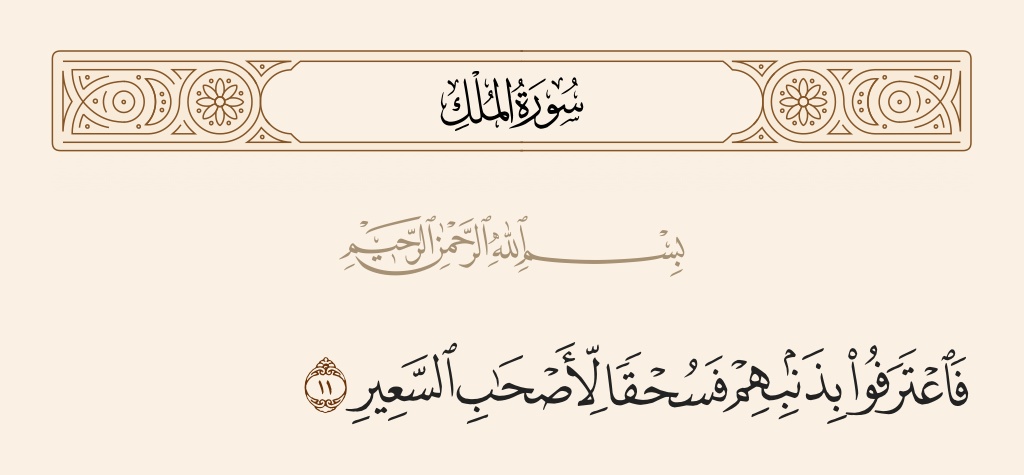 سُورَةُ الْمُلْكِ
بِسْمِ ٱللَّهِ ٱلرَّحْمَٰنِ ٱلرَّحِيمِ
فَٱعْتَرَفُوا۟ بِذَنۢبِهِمْ فَسُحْقًا لِّأَصْحَٰبِ ٱلسَّعِيرِ ١١